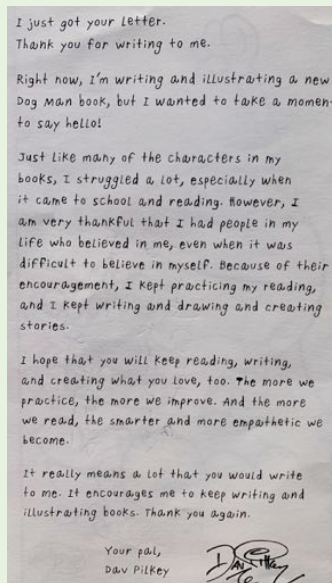 I just got your letter.
Thank you for writing to me.
Right now, I'm writing and illustrating a new
Dog Man book, but I wanted to take a moment
to say hello!
Just like many of the characters in my
books, I struggled a lot, especially when
it came to school and reading. However, I
am very thankful that I had people in my
life who believed in me, even when it was
difficult to believe in myself. Because of their
encouragement, I kept practicing my reading,
and I kept writing and drawing and creating
stories.
I hope that you will keep reading, writing,
and creating what you love, too. The more we
practice, the more we improve. And the more
we read, the smarter and more empathetic we
become.
It really means a lot that you would write
to me. It encourages me to keep writing and
illustrating books. Thank you again.
Your pal,
Dav Pilkey
Dav Pilkey